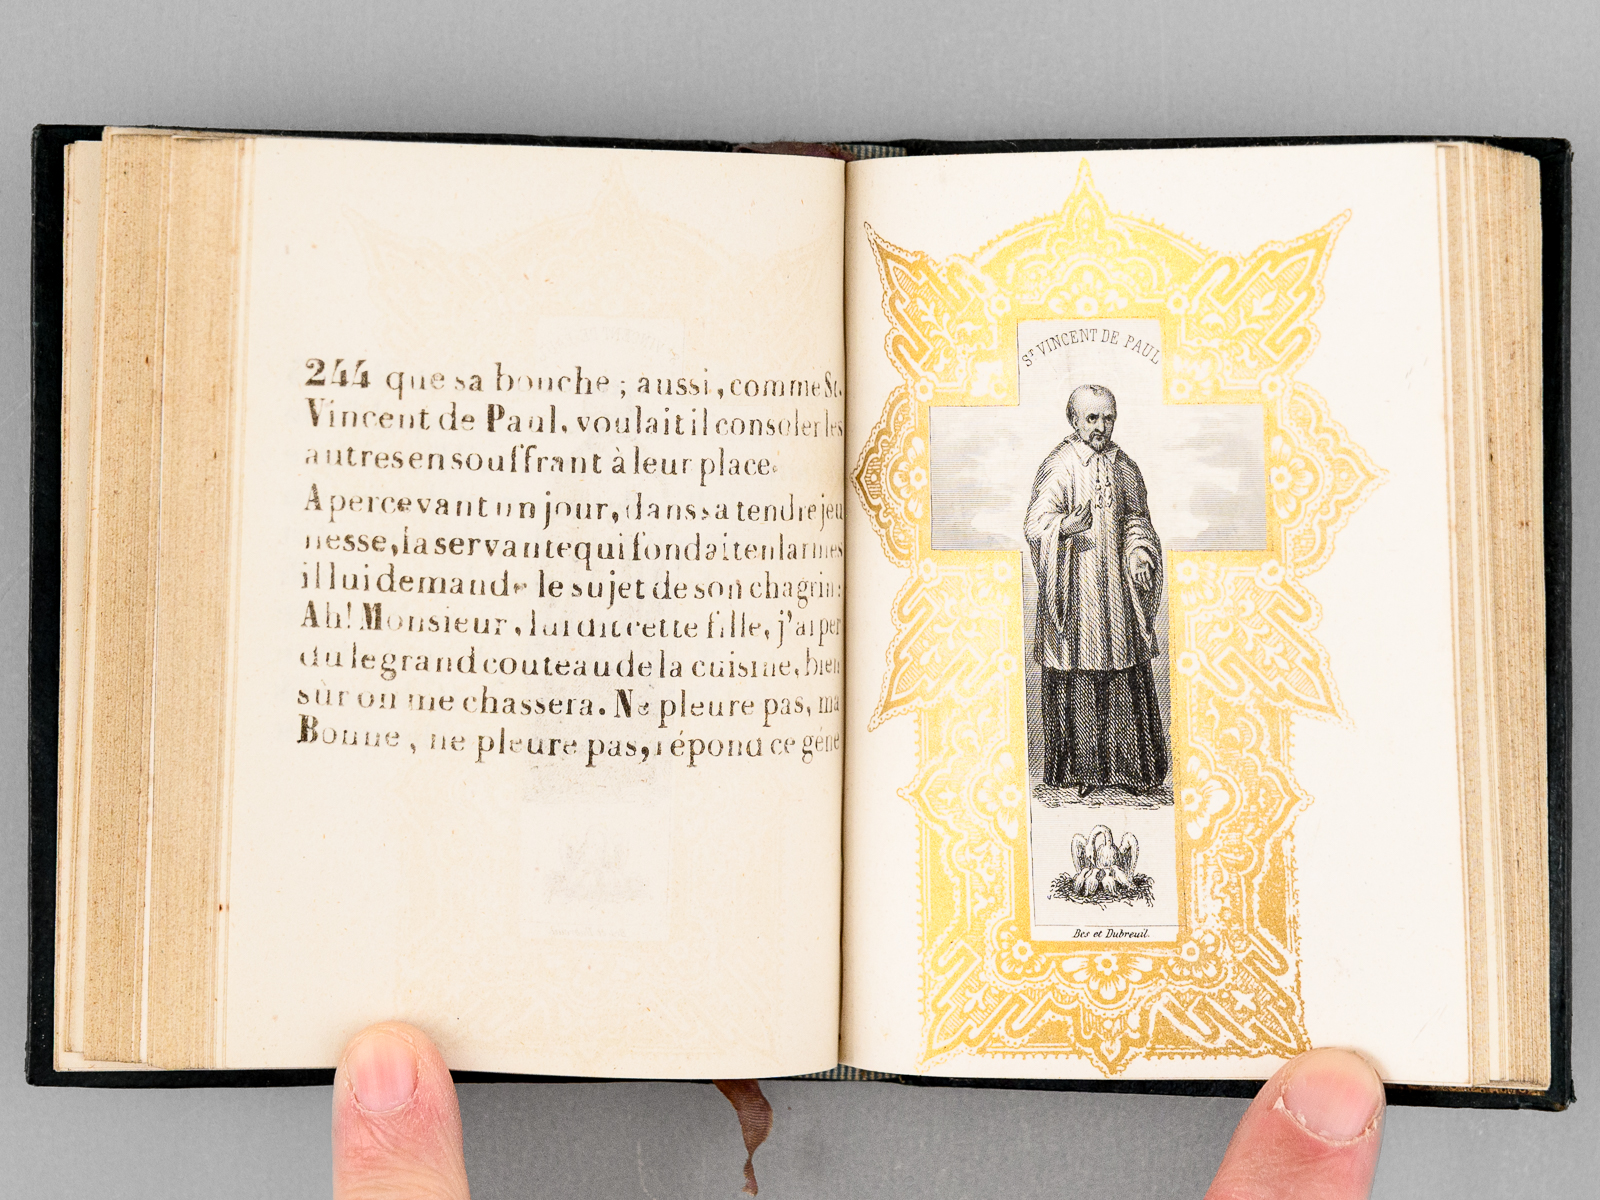 244 que sa bouche ; aussi, comme St.
Vincent de Paul, voulait il consoler les
autres en souffrant à leur place.
Apercevant un jour, dans sa tendre jeu
nesse, la servante qui fondait en larmes
il lui demande le sujet de son chagrin:
Ah! Monsieur, lui dit cette fille, j'ai per
du le grand couteau de la cuisine, bien
sûr on me chassera. Ne pleure pas, ma
Bonne, ne pleure pas, répond ce géné
ST VINCENT DE PAUL
Bes et Dubreuil.